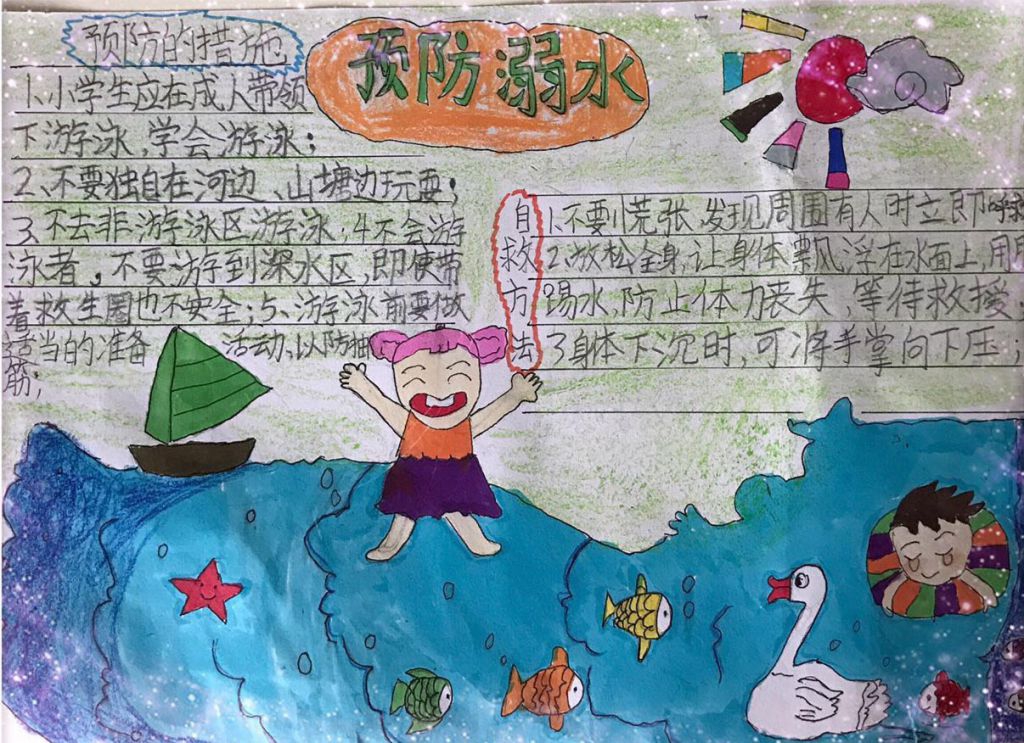 预防溺水
预防的措施
1、小学生应在成人带领
下游泳,学会游泳;
2、不要独自在河边、山塘边玩耍;
3、不去非游泳区游泳;4不会游
泳者,不要游到深水区,即使带
着救生圈也不安全;5、游泳前要做
适当的准备活动,以防抽
筋;
自救方法
1、不要慌张,发现周围有人时立即呼救
2、放松全身,让身体飘浮在水面上,用
踢水,防止体力丧失,等待救援
3身体下沉时,可将手掌向下压;